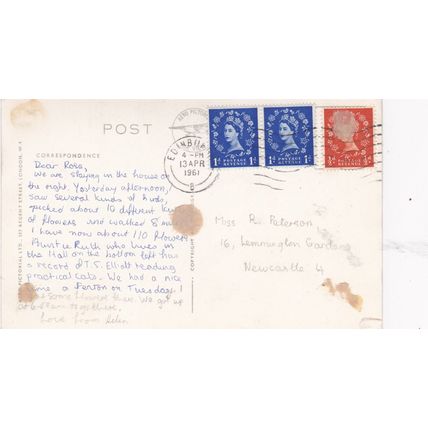 POST
CORRESPONDENCE
Dear Rosa,
We are staying in the house on
the right. Yesterday afternoon I
saw several kinds of birds,
picked about 10 different kinds
of flowers and walked 8 miles
I have now about 110 flowers
Aunt Ruth who lives in
the Hall on the bottom left has
a record of T.S. Elliott reading
practical cats. We had a nice
time a Penton on Tuesday. I
some flowers there. We got up
at
Love from
PICTORIAL LTD., 137 REGENT STREET, LONDON, W.1
COPYRIGHT
AERO PICTORIAL
EDINBURGH
4 - PM
13 APR
1961
B
1D POSTAGE REVENUE 1D
1D POSTAGE REVENUE 1D
½D POSTAGE REVENUE ½D
Miss R. Peterson
16, Lemmington Gardens
Newcastle 4